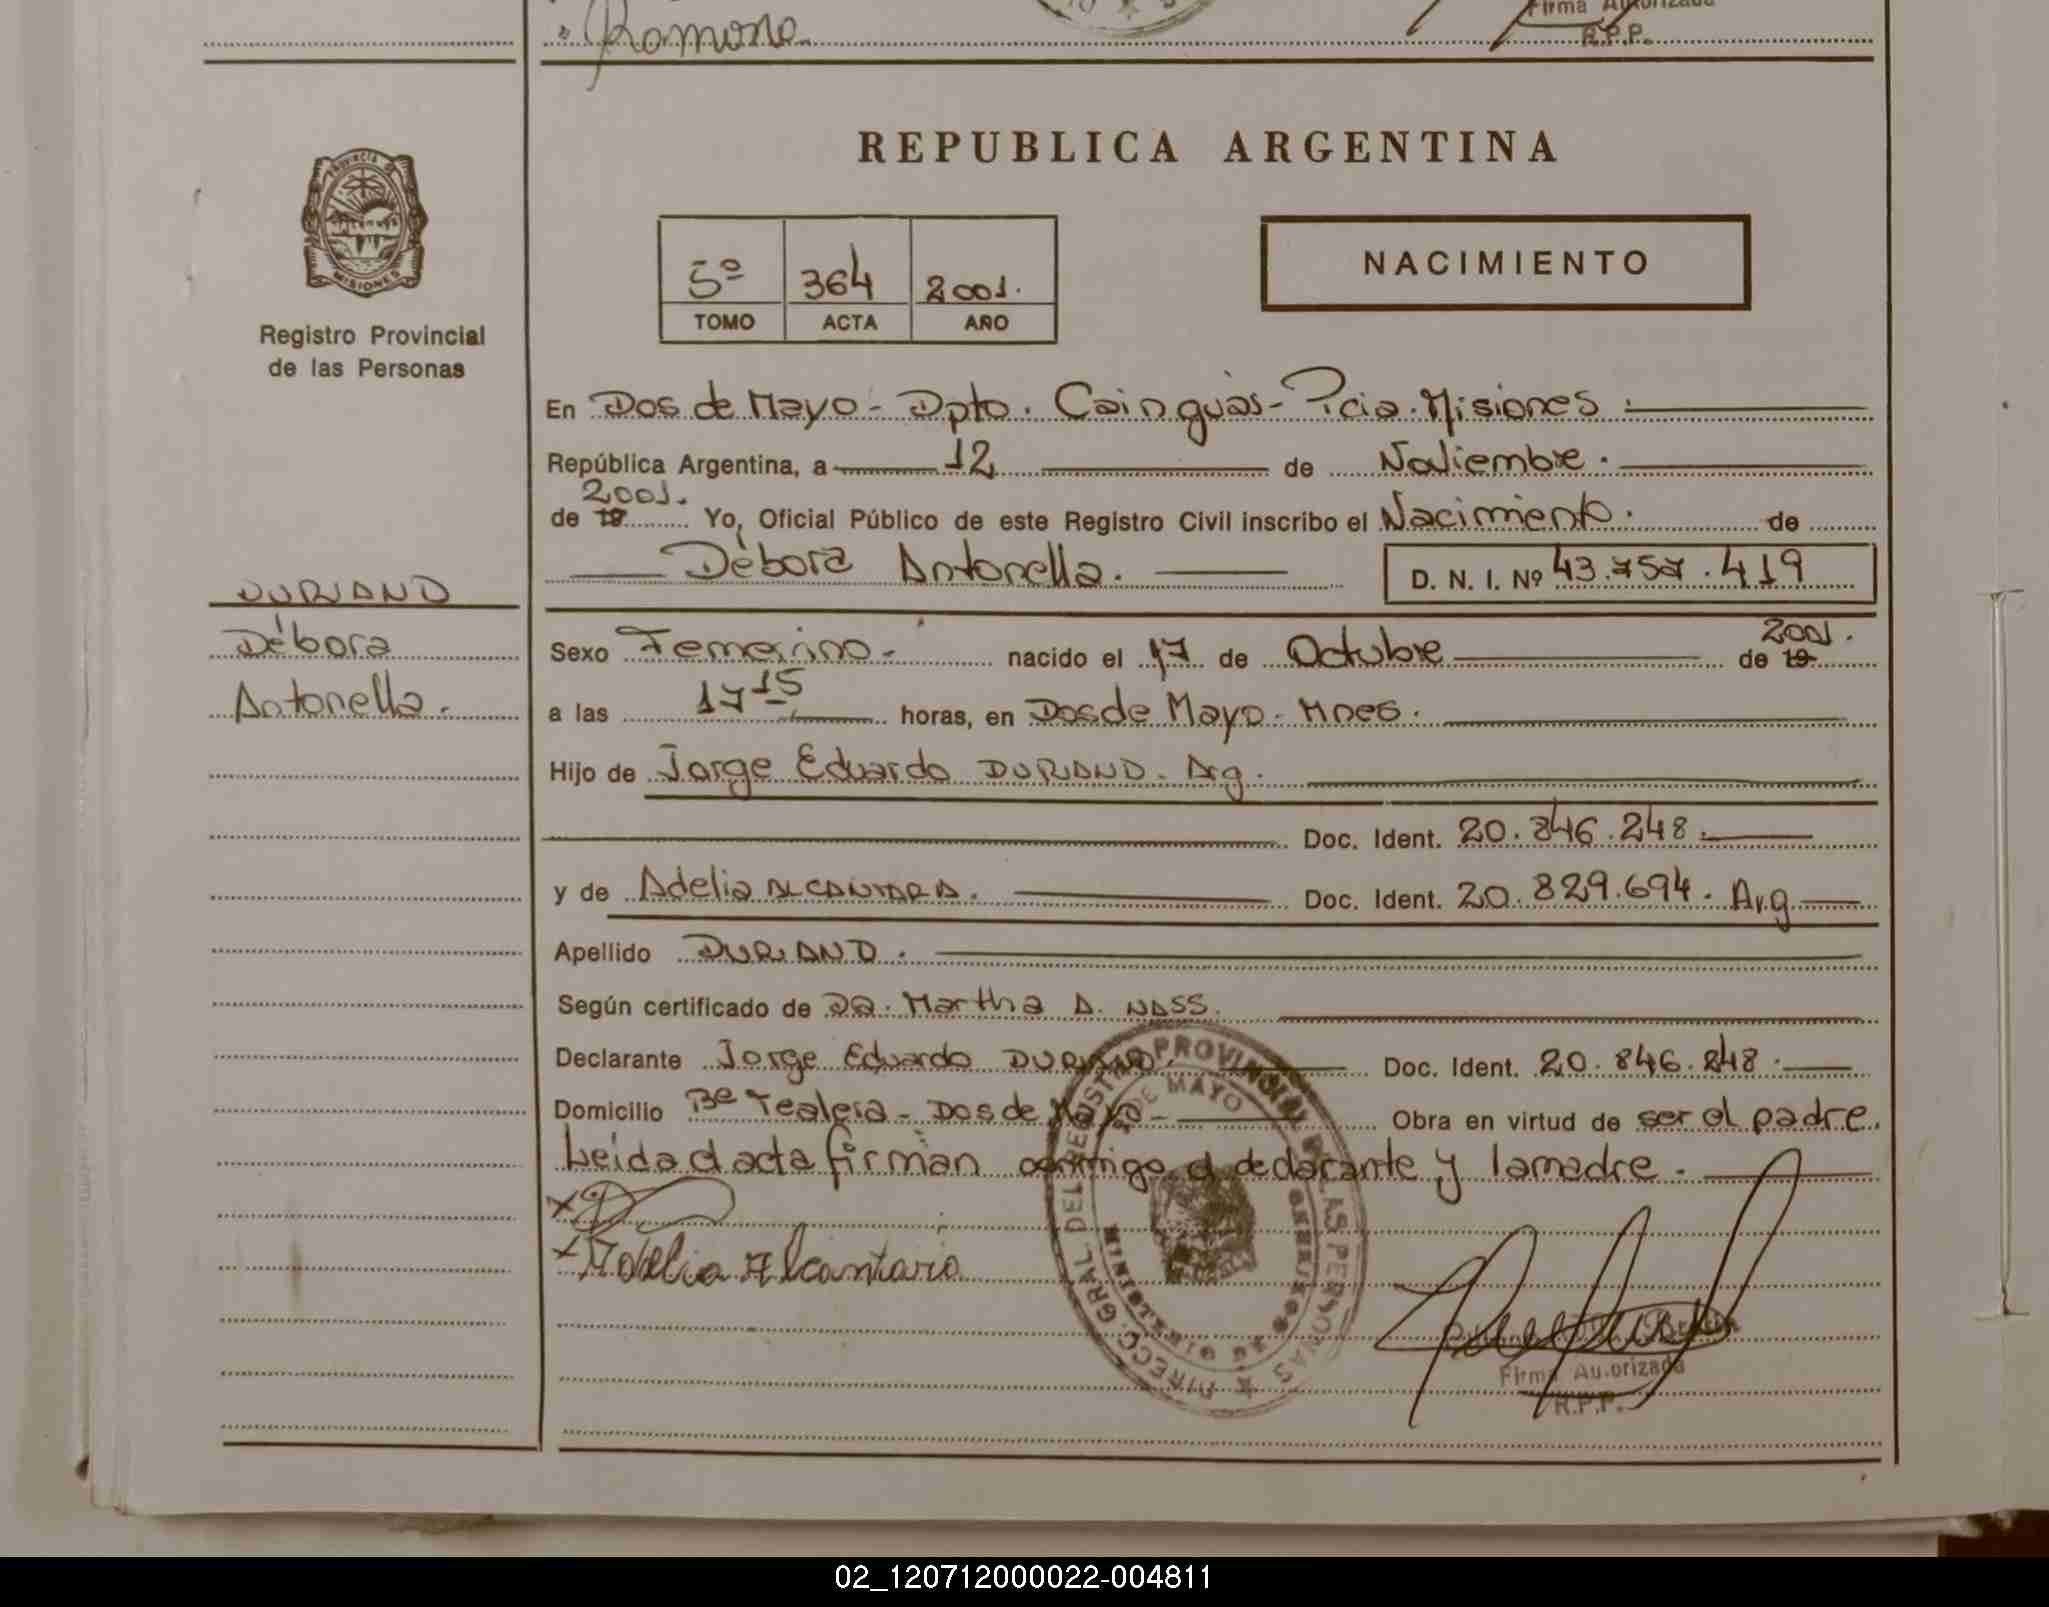 " Ramona
Firma Autorizada
R.P.P.
PROVINCIA DE
MISIONES
Registro Provincial
de las Personas
REPUBLICA ARGENTINA
5º 364 2001.
TOMO ACTA AÑO
NACIMIENTO
En Dos de Mayo - Dpto. Cainguás - Pcia. Misiones.
República Argentina, a 12 de Noviembre.
2001.
de 19 Yo, Oficial Público de este Registro Civil inscribo el Nacimiento. de
Débora Antonella. D. N. I. Nº 43.757.419
DURAND
Débora
Antonella.
Sexo Femenino. nacido el 17 de Octubre de 19 2001.
a las 17 15 horas, en Dos de Mayo - Mnes.
Hijo de Jorge Eduardo DURAND. Arg.
Doc. Ident. 20.846.248.
y de Adelia ALCANTARA. Doc. Ident. 20.829.694. Arg
Apellido DURAND.
Según certificado de DRA. Martha A. NASS.
Declarante Jorge Eduardo DURAND. Doc. Ident. 20.846.248.
Domicilio Bº - Dos de Mayo - Obra en virtud de ser el padre.
Leida el acta firman conmigo el declarante y la madre.
x
x Adelia Alcantara
DIRECC. GRAL. DEL REGISTRO PROVINCIAL DE LAS PERSONAS
2 DE MAYO
MINISTERIO DE GOBIERNO
Firma Autorizada
R.P.P.
02_120712000022-004811